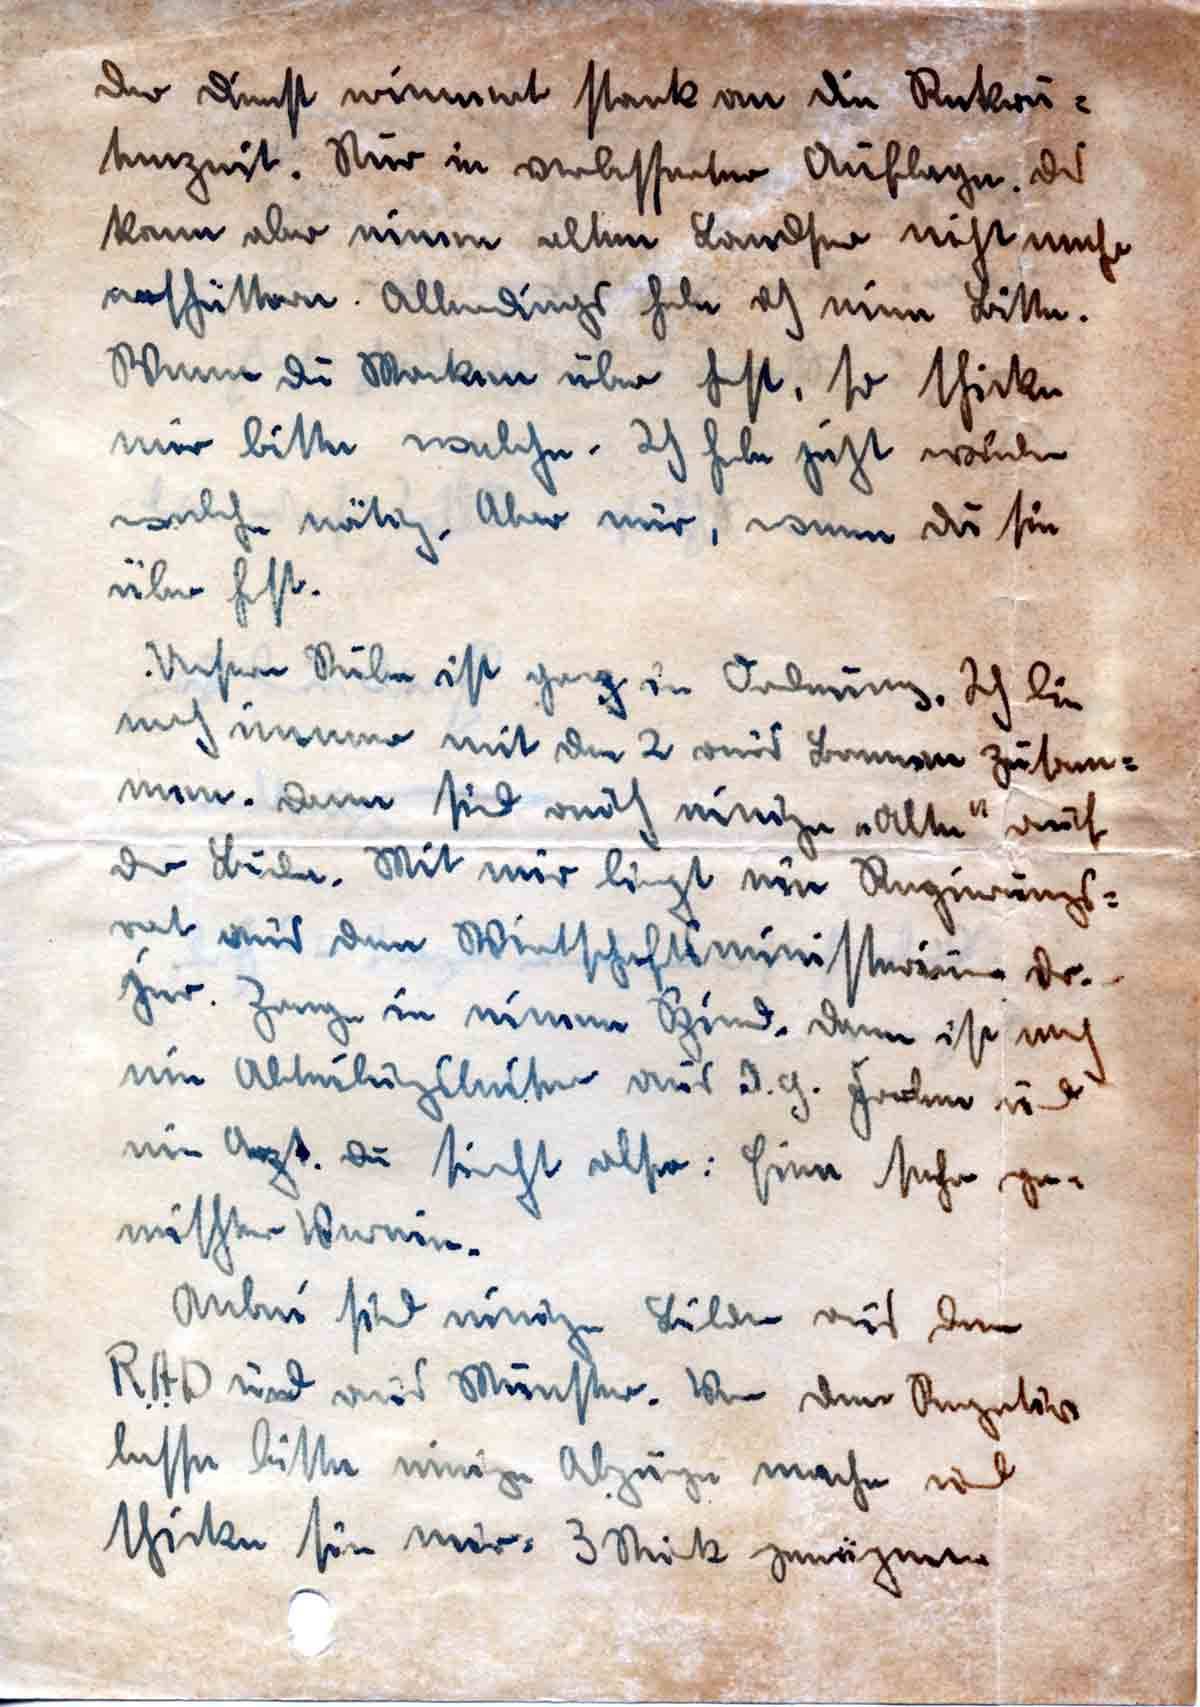 Der Dienst erinnert stark an die Rekru-
tenzeit. Nur in verbesserter Auflage. Das
kann aber einen alten Landser nicht mehr
erschüttern. Allerdings habe ich eine Bitte.
Wenn du Marken über hast, so schicke
mir bitte welche. Ich habe jetzt wieder
welche nötig. Aber nur, wenn du sie
über hast.
Unsere Stube ist ganz in Ordnung. Ich bin
noch immer mit den 2 aus Bremen zusam-
men. Dann sind auch einige „Alte" auf
der Bude. Mit mir liegt ein Regierungs-
rat aus dem Wirtschaftsministerium Dr.
jur. Zange in einem Spind. Dann ist noch
ein Abteilungsleiter aus I.G. Farben und
ein Arzt. Du siehst also: Eine sehr ge-
mischter Verein.
Anbei sind einige Bilder aus dem
R.A.D und aus Münster. Von dem
lasse bitte einige Abzüge machen und
schicke sie mir. 3 Stück genügen